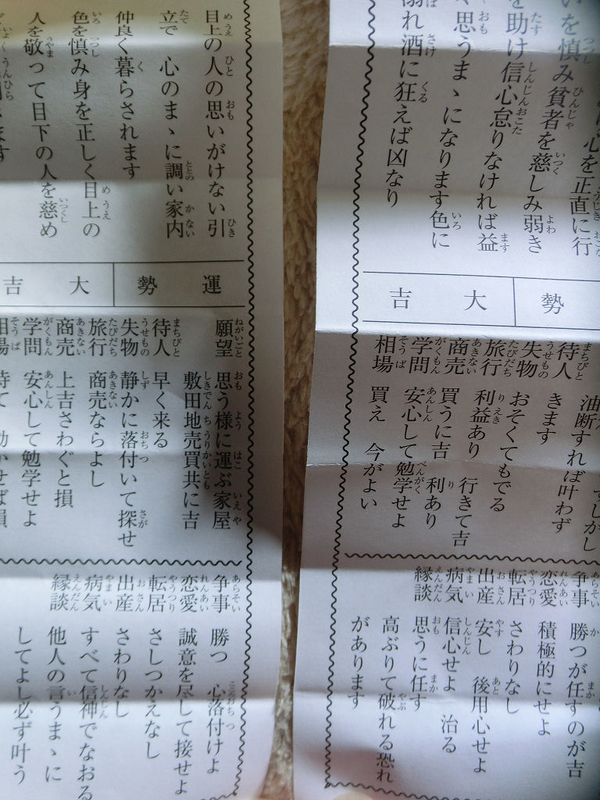 心を正直に行
いを慎み貧者を慈しみ弱き
を助け信心怠りなければ益
思うまゝになります色に
溺れ酒に狂えば凶なり
勢 大吉
油断すれば叶わず
待人 きます
失物 おそくてもでる
旅行 利益あり 行きて吉
商売 買うに吉 利あり
学問 安心して勉学せよ
相場 買え 今がよい
争事 勝つが任すのが吉
恋愛 積極的にせよ
転居 さわりなし
出産 安し 後用心せよ
病気 信心せよ 治る
縁談 思うに任す
高ぶりて破れる恐れ
があります
目上の人の思いがけない引
立で 心のまゝに調い家内
仲良く暮らされます
色を慎み身を正しく目上の
人を敬って目下の人を慈め
運勢 大吉
願望 思う様に運ぶ家屋
敷田地売買共に吉
待人 早く来る
失物 静かに落付いて探せ
旅行 商売ならよし
商売 上吉さわぐと損
学問 安心して勉学せよ
相場 待て 動かせば損
争事 勝つ 心落付けよ
恋愛 誠意を尽して接せよ
転居 さしつかえなし
出産 さわりなし
病気 すべて信神でなおる
縁談 他人の言うまゝに
してよし必ず叶う